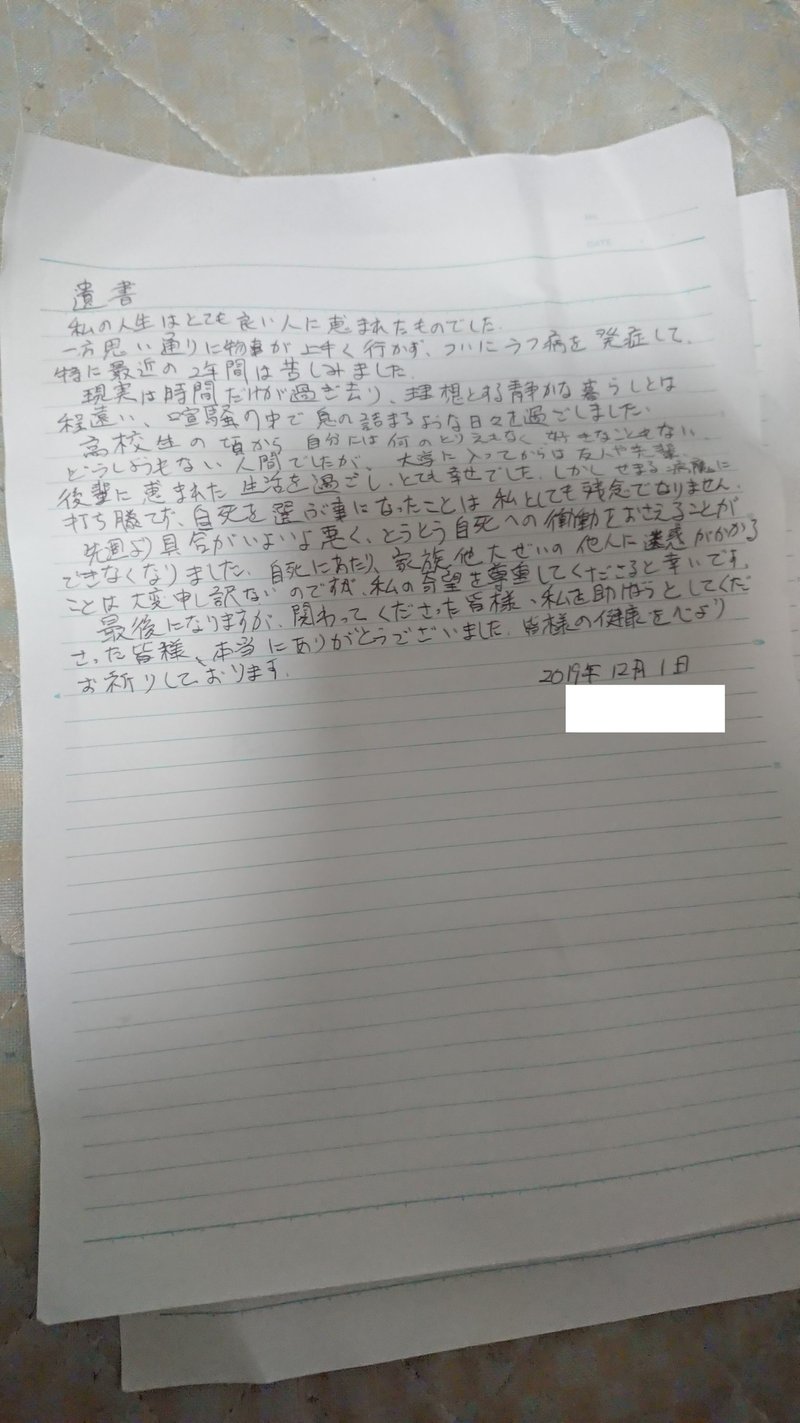 遺書
私の人生はとても良い人に恵まれたものでした.
一方思い通りに物事が上手く行かず、ついにうつ病を発症して、
特に最近の2年間は苦しみました.
現実は時間だけが過ぎ去り、理想とする静かな暮らしとは
程遠い、喧騒の中で息の詰まるような日々を過ごしました.
高校生の頃から自分には何のとりえもなく好きなこともない、
どうしようもない人間でしたが、大学に入ってからは友人や先輩、
後輩に恵まれた生活を過ごし、とても幸せでした.しかしせまる病魔に
打ち勝てず、自死を選ぶ事になったことは私としても残念でなりません.
先週より具合がいよいよ悪く、とうとう自死への衝動をおさえることが
できなくなりました.自死にあたり、家族他大ぜいの他人に迷惑がかかる
ことは大変申し訳ないのですが、私の希望を尊重してくださると幸いです.
最後になりますが、関わってくださった皆様、私を助けようとしてくだ
さった皆様、本当にありがとうございました.皆様の健康を心より
お祈りしております.
2019年12月1日